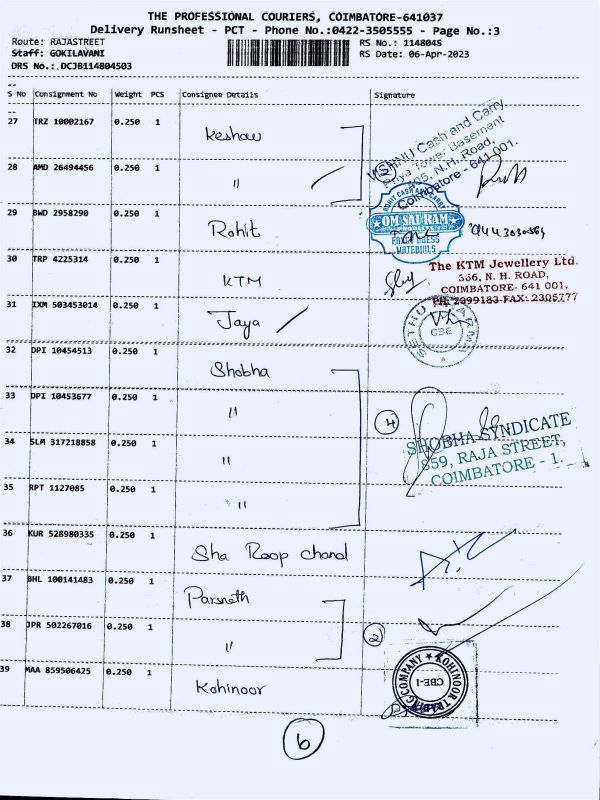 THE PROFESSIONAL COURIERS, COIMBATORE-641037
Delivery Runsheet - PCT - Phone No.:0422-3505555 - Page No.:3
Route: RAJASTREET
Staff: GOKILAVANI
DRS No.: DCJB114804503
RS No.: 1148045
RS Date: 06-Apr-2023
S No Consignment No Weight PCS Consignee Details Signature
27 TRZ 10002167 0.250 1 Keshav
VISHNU Cash and Carry
Priya Tower Basement
N. H. Road,
Coimbatore - 641 001.
28 AMD 26494456 0.250 1 "
2
29 BWD 2958290 0.250 1 Rohit
OM SAI RAM
MATERIALS
30 TRP 4225314 0.250 1 KTM
The KTM Jewellery Ltd.
366, N. H. ROAD,
COIMBATORE- 641 001.
PH: 2399183 FAX: 2305777
31 IXM 503453014 0.250 1 Jaya
CBE
32 DPI 10454513 0.250 1 Shobha
33 DPI 10453677 0.250 1 "
4
34 SLM 317218858 0.250 1 "
SHOBHA SYNDICATE
859, RAJA STREET,
COIMBATORE - 1.
35 RPT 1127085 0.250 1 "
36 KUR 528980335 0.250 1 Sha Roop chand
37 BHL 100141483 0.250 1 Parsnath
38 JPR 502267016 0.250 1 "
2
39 MAA 859506425 0.250 1 Kohinoor
KOHINOOR
COMPANY
CBE-1
6